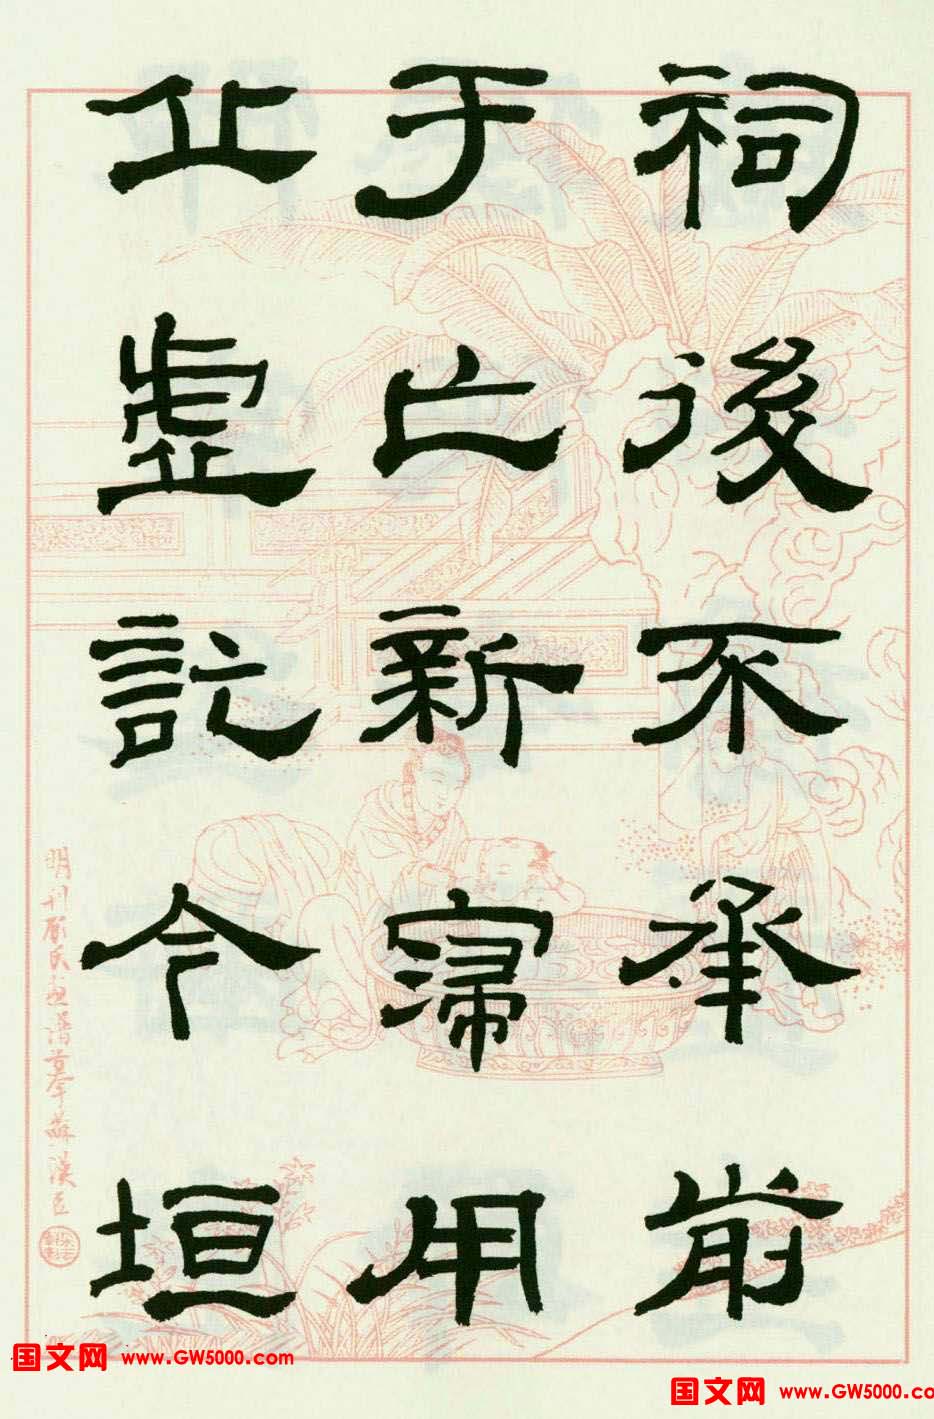 祠後不承前
于亡新寖用
丘虛訖今垣
明刊顧氏畫譜摹蘇漢臣
国文网 www.GW5000.com
国文网 www.GW5000.co